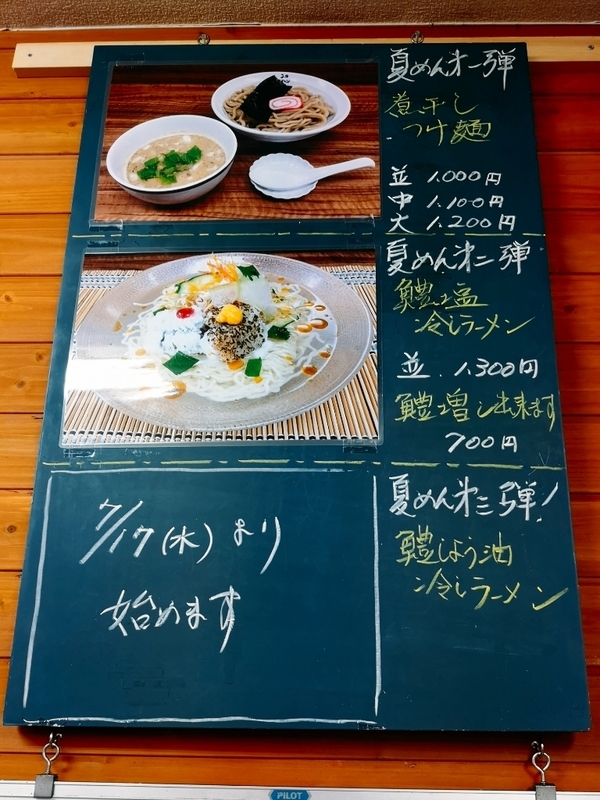 夏めん㐧一弾
煮干し
つけ麺
並 1.000円
中 1.100円
大 1.200円
夏めん㐧二弾
鱧塩
冷しラーメン
並 1.300円
鱧増し出来ます
700円
夏めん㐧三弾!
鱧しょう油
冷しラーメン
7/17(水)より
始めます
PILOT